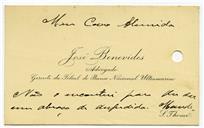 Meu Caro Almeida
José Benevides
Advogado
Gerente da Filial do Banco Nacional Ultramarino
Não o encontrei para dar-lhe
um abraço de despedida.
S. Thomé